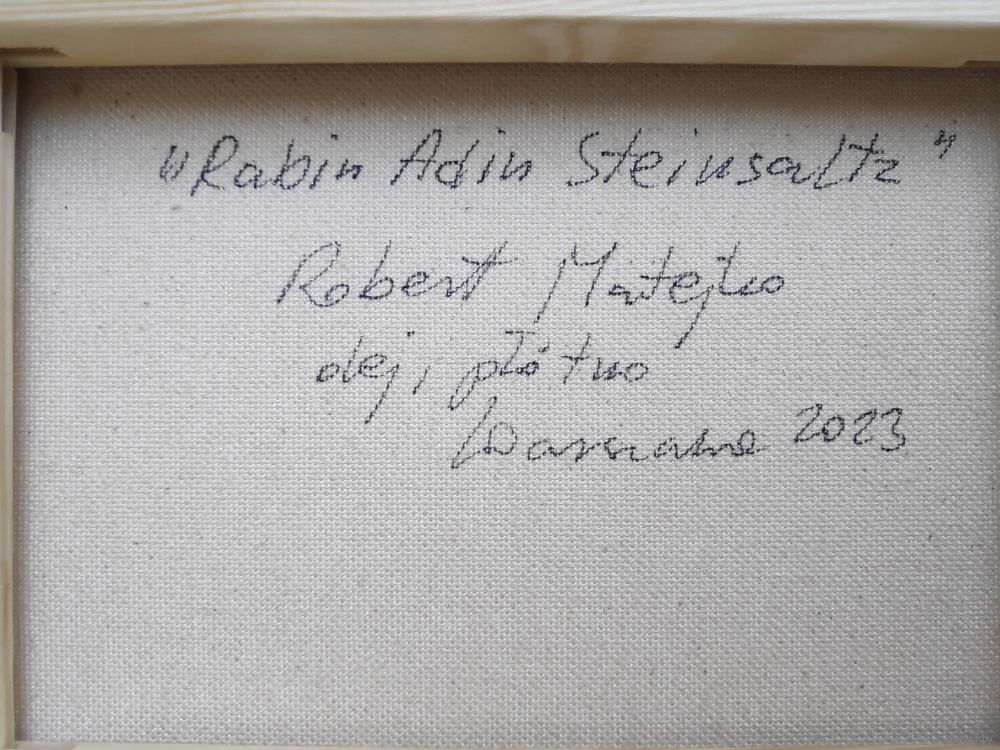 "Rabin Adin Steinsaltz"
Robert Matejko
olej, płótno
Warszawa 2023